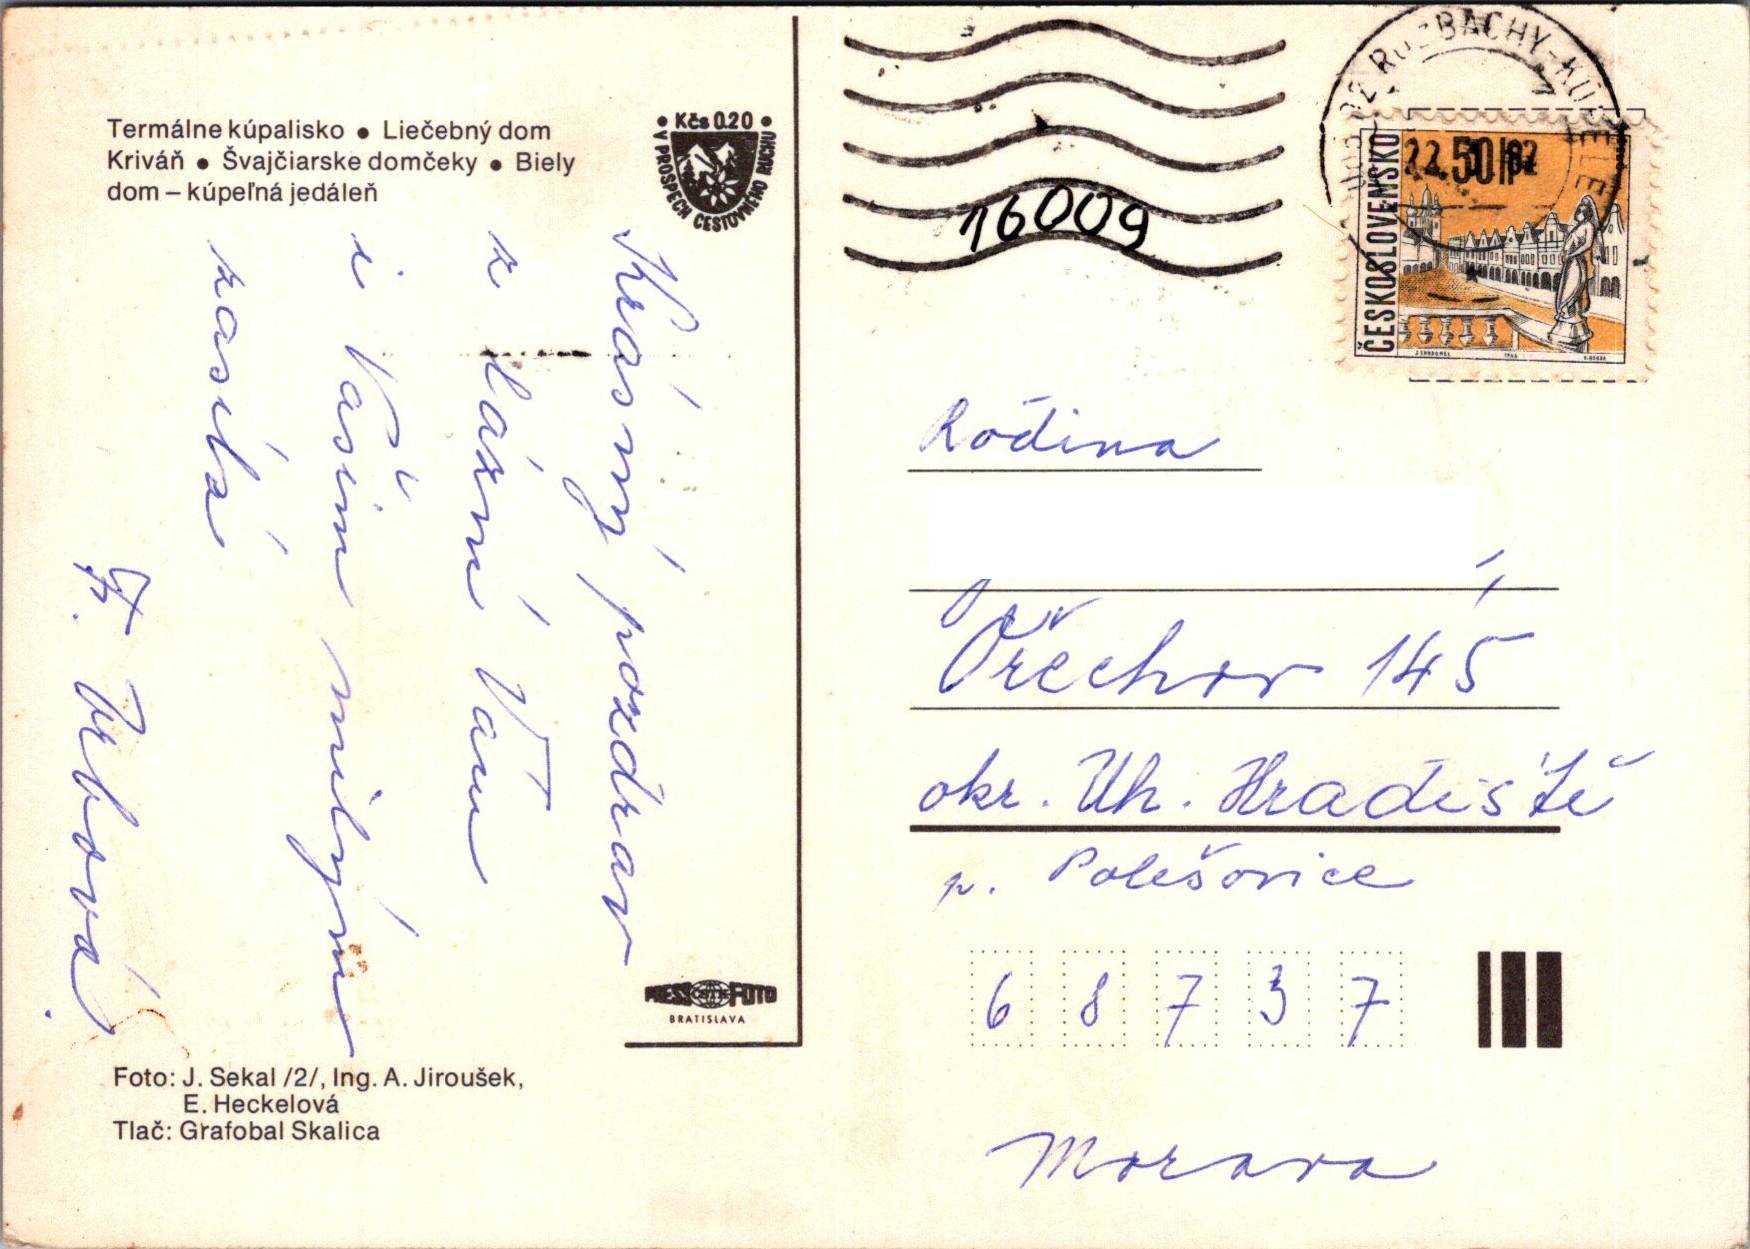 Termálne kúpalisko • Liečebný dom
Kriváň • Švajčiarske domčeky • Biely
dom – kúpeľná jedáleň
• Kčs 0.20 •
V PROSPECH CESTOVNÉHO RUCHU
Krásný pozdrav
z lázní Vám
i Vašim milým
zasílá
F. Urbová.
PRESS FOTO
BRATISLAVA
Foto: J. Sekal /2/, Ing. A. Jiroušek,
E. Heckelová
Tlač: Grafobal Skalica
16009
RUŽBACHY-KÚPELE
22. 82
ČESKOSLOVENSKO
50 h
1966
Rodina
Ořechov 145
okr. Uh. Hradiště
p. Polešovice
6 8 7 3 7
Morava